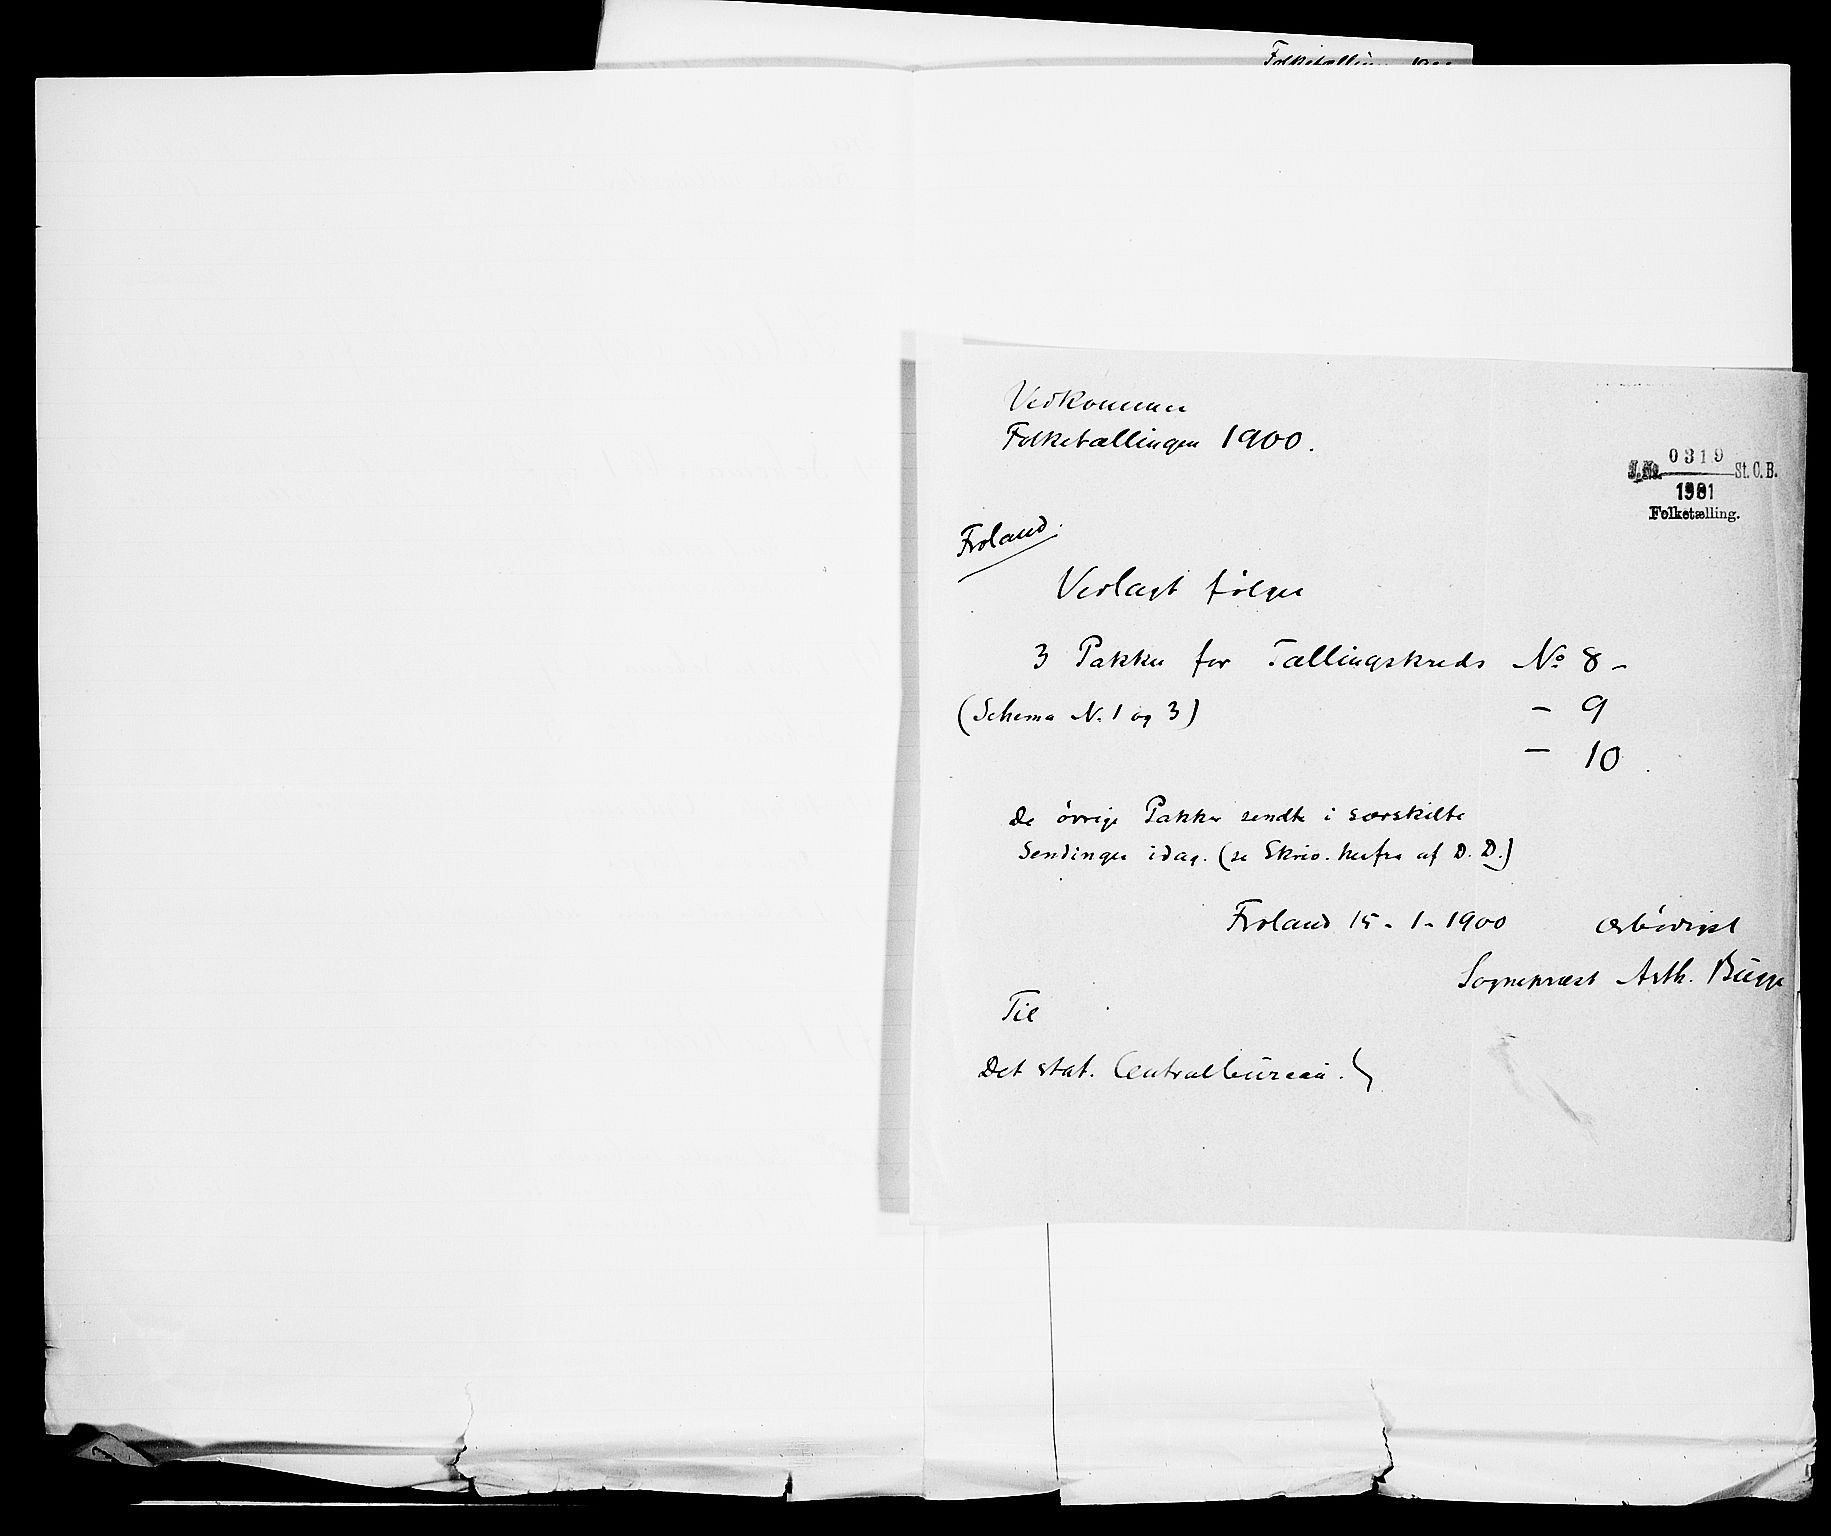 Folketællingen
Vedkommer
Folketællingen 1900.
J.No. 0319 St. C. B.
1901
Folketælling.
Froland.
Vedlagt følger
3 Pakker for Tællingskreds No 8 -
(Schema N. 1 og 3) - 9
- 10
De øvrige Pakker sendte i særskilte
Sendinger idag. (se Skriv. herfra af D. D.)
Froland 15 - 1 - 1900 ærbødigst
Sogneprest Arth. Bugge
Til
Det stat. Centralbureau.